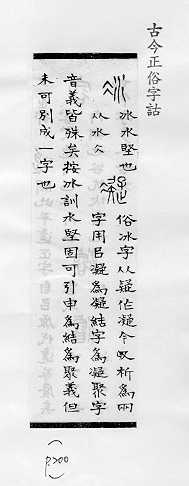 古今正俗字詁
冰 冰水堅也
从水仌
凝 俗冰字从疑作凝今又析為兩
字用㠯凝為凝結字為凝聚字
音義皆殊矣按冰訓水堅固可引申為結為聚義但
未可別成一字也
(P200)